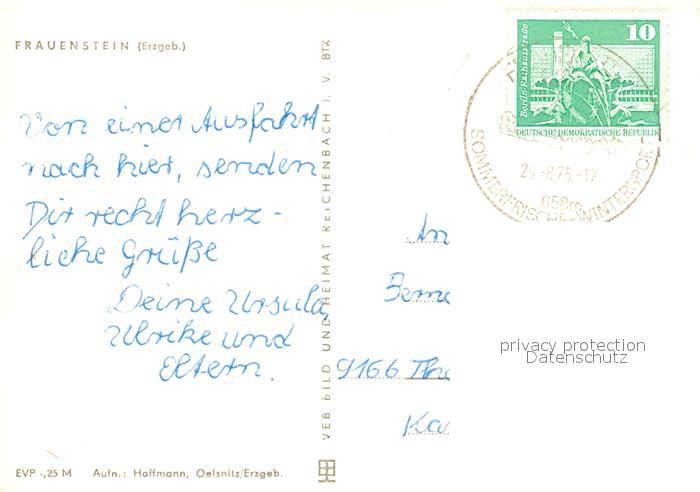 FRAUENSTEIN (Erzgeb.)
Von einer Ausfahrt
nach hier, senden
Dir recht herz-
liche Grüße
Deine Ursula,
Ulrike und
Eltern.
EVP -,25 M Aufn.: Hoffmann, Oelsnitz/Erzgeb.
VEB BILD UND HEIMAT REICHENBACH i. V. BTK
10
Berlin, Rathausstraße
DEUTSCHE DEMOKRATISCHE REPUBLIK
-8.75.-12
658m
SOMMERFRISCHE-WINTERSPORT
An
9166
Ka
privacy protection
Datenschutz